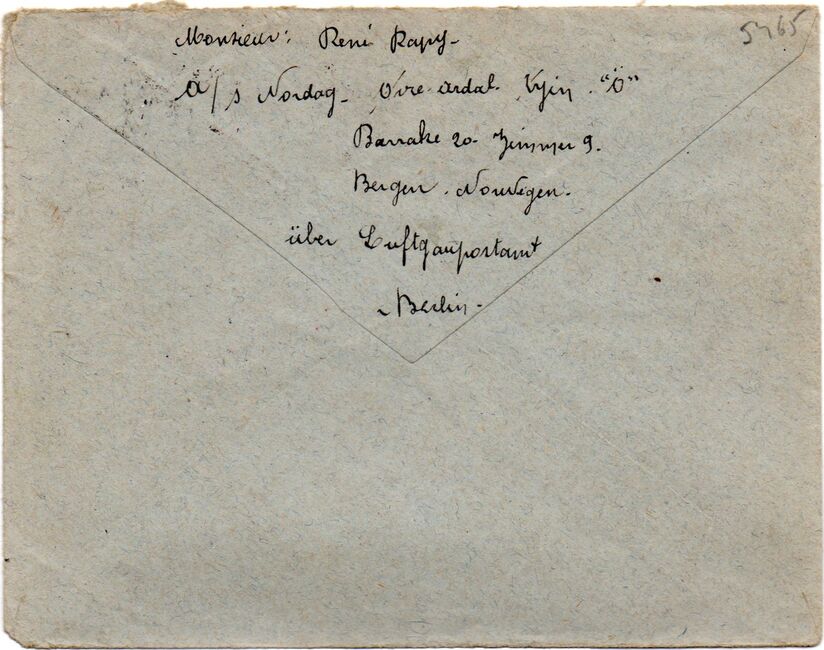 Monsieur: René Rapy-
A/s Nordag- Övre-ardal. Tyin. "Ö"
Barrake 20- Zimmer 9.
Bergen. Norwegen.
über Luftgaupostamt
Berlin-